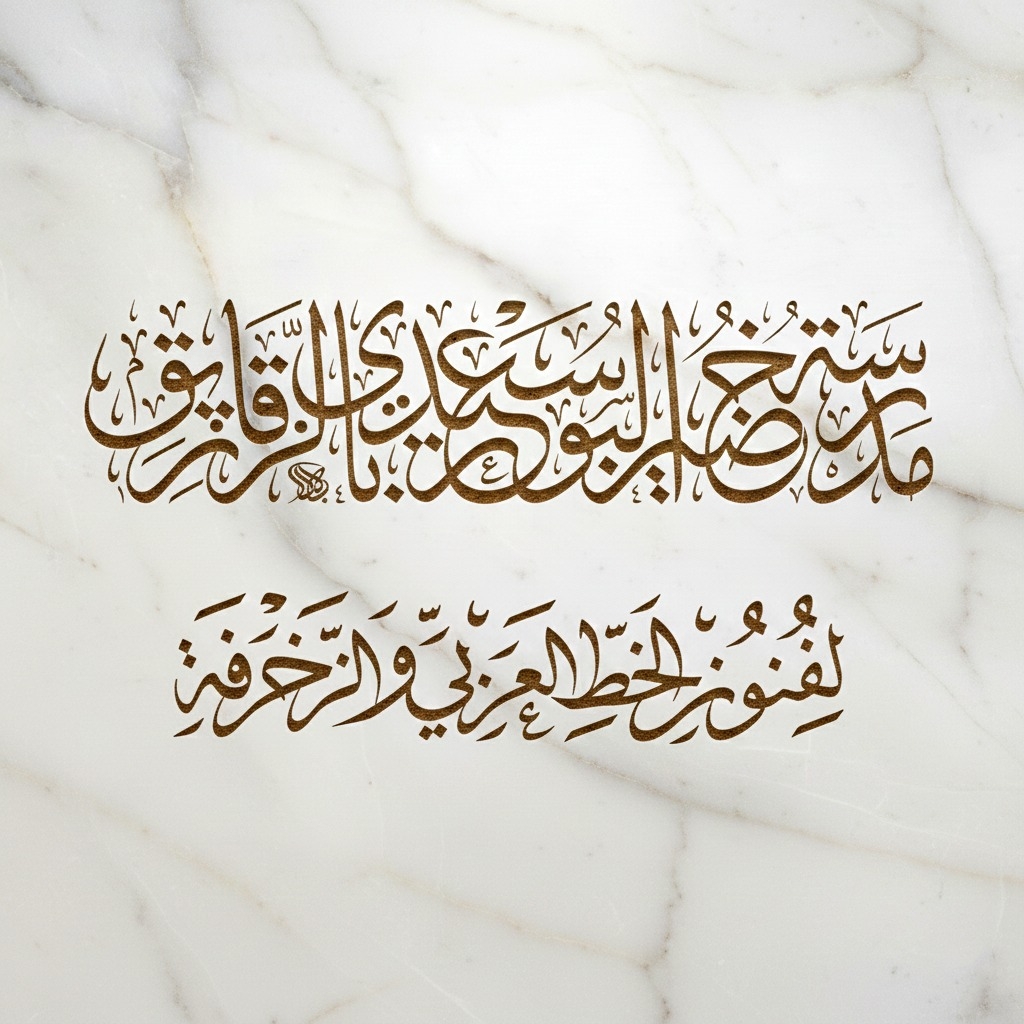 مدرسة خضير البورسعيدي بالزقازيق
لفنون الخط العربي والزخرفة